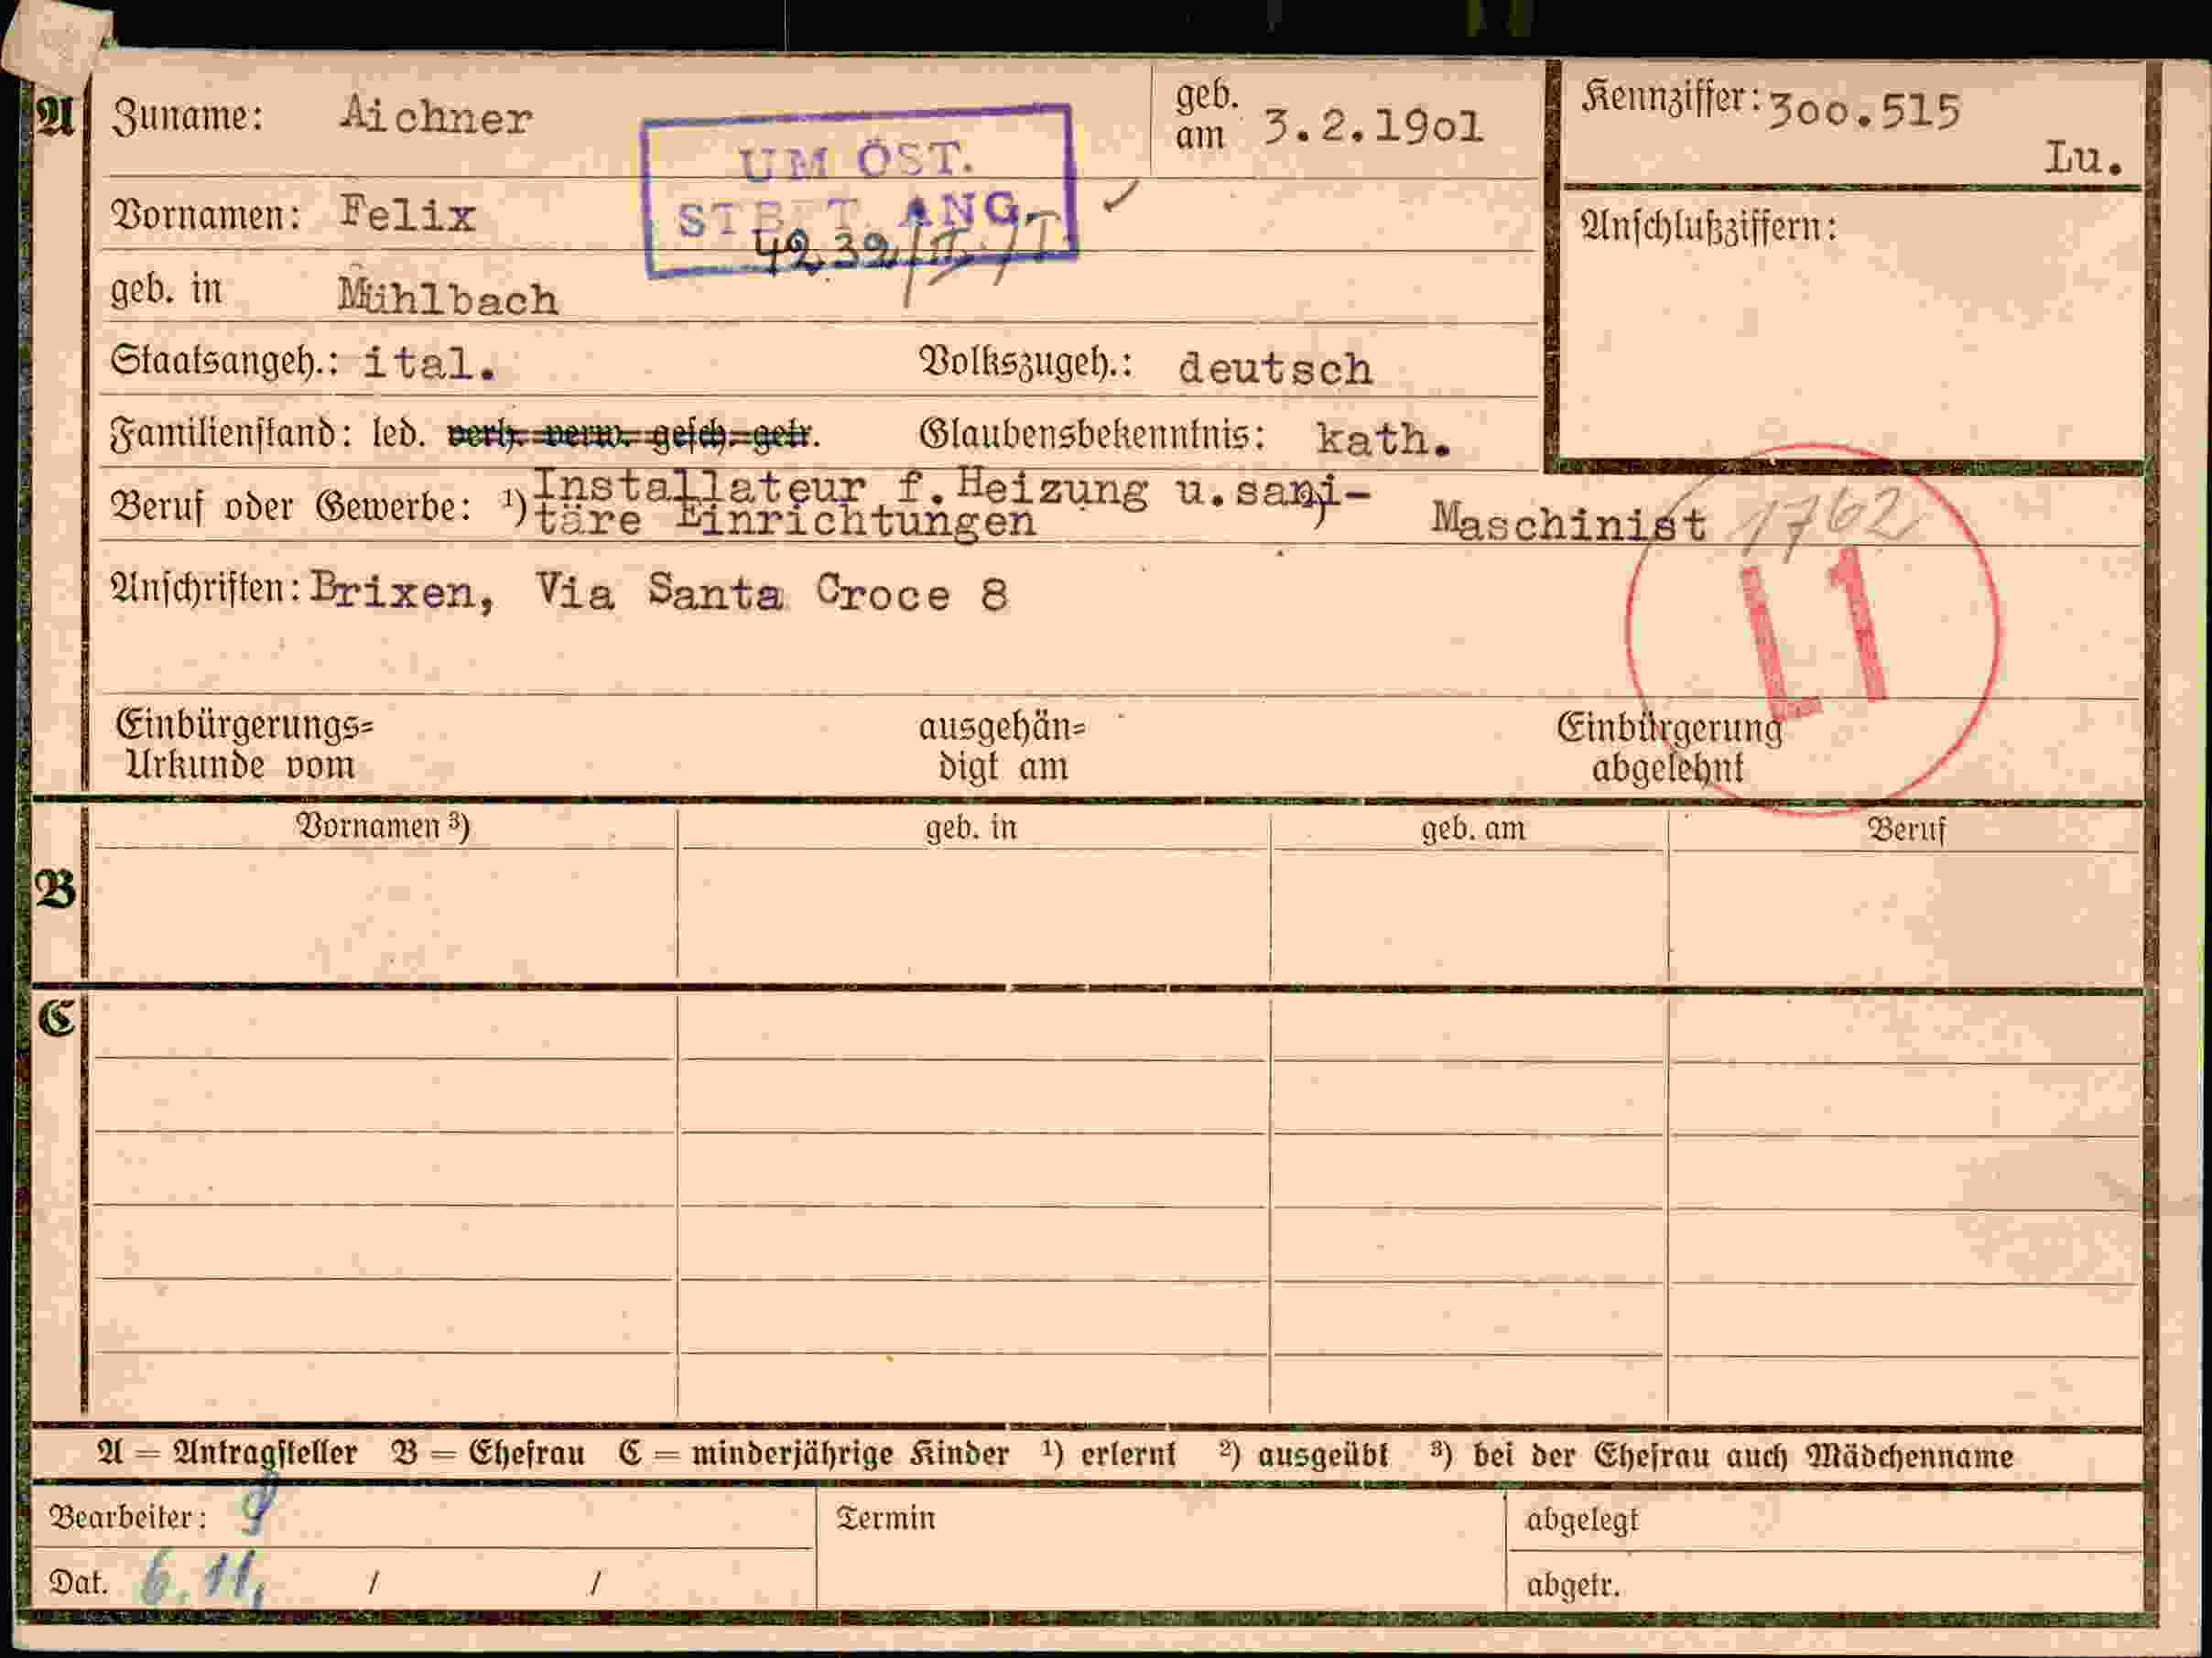 A Zuname: Aichner
geb. am 3.2.19o1
Kennziffer: 3oo.515
Lu.
UM ÖST.
ST ANG.
4232/II./T.
Vornamen: Felix
Anschlußziffern:
geb. in Mühlbach
Staatsangeh.: ital. Volkszugeh.: deutsch
Familienstand: led. verh. verw. gesch. getr. Glaubensbekenntnis: kath.
Beruf oder Gewerbe: ¹) Installateur f.Heizung u.sani-
täre Einrichtungen
Maschinist 1762
L1
Anschriften: Brixen, Via Santa Croce 8
Einbürgerungs= ausgehän= Einbürgerung
Urkunde vom digt am abgelehnt
Vornamen ³) geb. in geb. am Beruf
B
C
A = Antragsteller B = Ehefrau C = minderjährige Kinder ¹) erlernt ²) ausgeübt ³) bei der Ehefrau auch Mädchenname
Bearbeiter: Termin abgelegt
Dat. 6.11. / / abgetr.